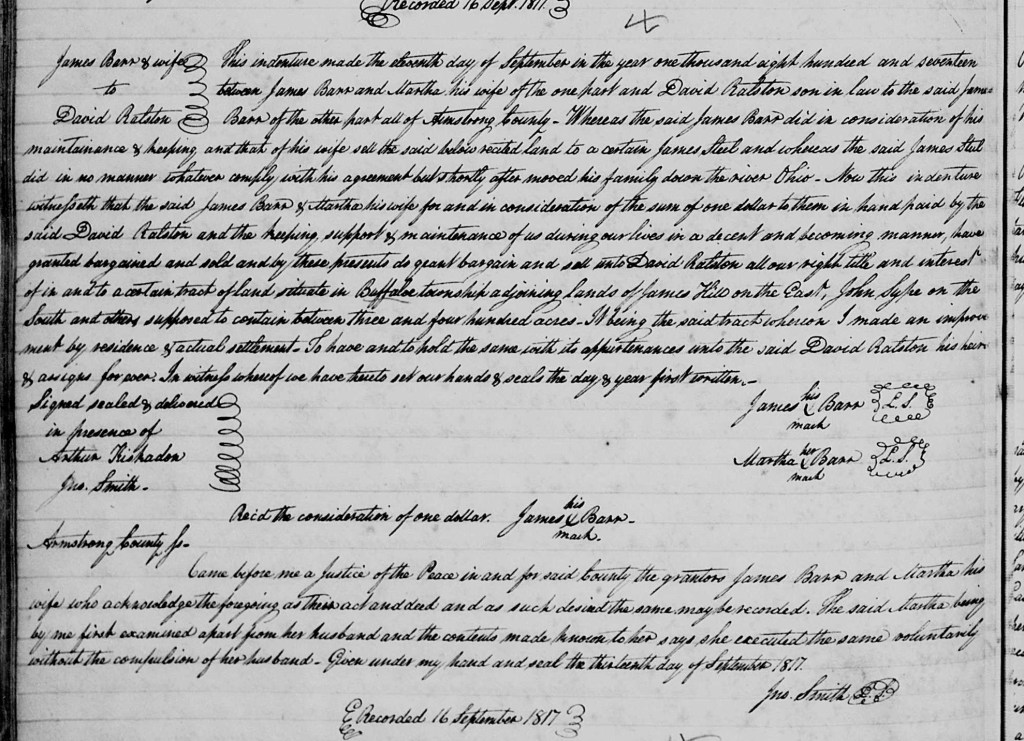 Recorded 16 Sept. 1817.
James Barr & wife This indenture made the eleventh day of September in the year one thousand eight hundred and seventeen
to between James Barr and Martha his wife of the one part and David Ralston son in law to the said James
David Ralston Barr of the other part all of Armstrong County - Whereas the said James Barr did in consideration of his
maintainance & keeping and that of his wife sell the said below recited land to a certain James Steel and whereas the said James Steel
did in no manner whatever comply with his agreement but shortly after moved his family down the river Ohio - Now this indenture
witnesseth that the said James Barr & Martha his wife for and in consideration of the sum of one dollar to them in hand paid by the
said David Ralston and the keeping, support & maintenance of us during our lives in a decent and becoming manner, have
granted bargained and sold and by these presents do grant bargain and sell unto David Ralston all our right title and interest
of in and to a certain tract of land situate in Buffaloe township adjoining lands of James Hill on the East, John Sype on the
South and others supposed to contain between three and four hundred acres - It being the said tract whereon I made an improve
ment by residence & actual settlement - To have and to hold the same with its appurtenances unto the said David Ralston his heirs
& assigns for ever. In witness whereof we have hereto set our hands & seals the day & year first written. -
Signed sealed & delivered James his Barr L.S.
in presence of mark
Arthur Kiskadon Martha her Barr L.S.
Jno. Smith - mark
Rec'd the consideration of one dollar. James his Barr -
mark.
Armstrong County Ss -
Came before me a Justice of the Peace in and for said County the grantors James Barr and Martha his
wife who acknowledge the foregoing as their act and deed and as such desired the same may be recorded. The said Martha being
by me first examined apart from her husband and the contents made known to her says she executed the same voluntarily
without the compulsion of her husband - Given under my hand and seal the thirteenth day of September 1817.
Jno. Smith
Recorded 16 September 1817